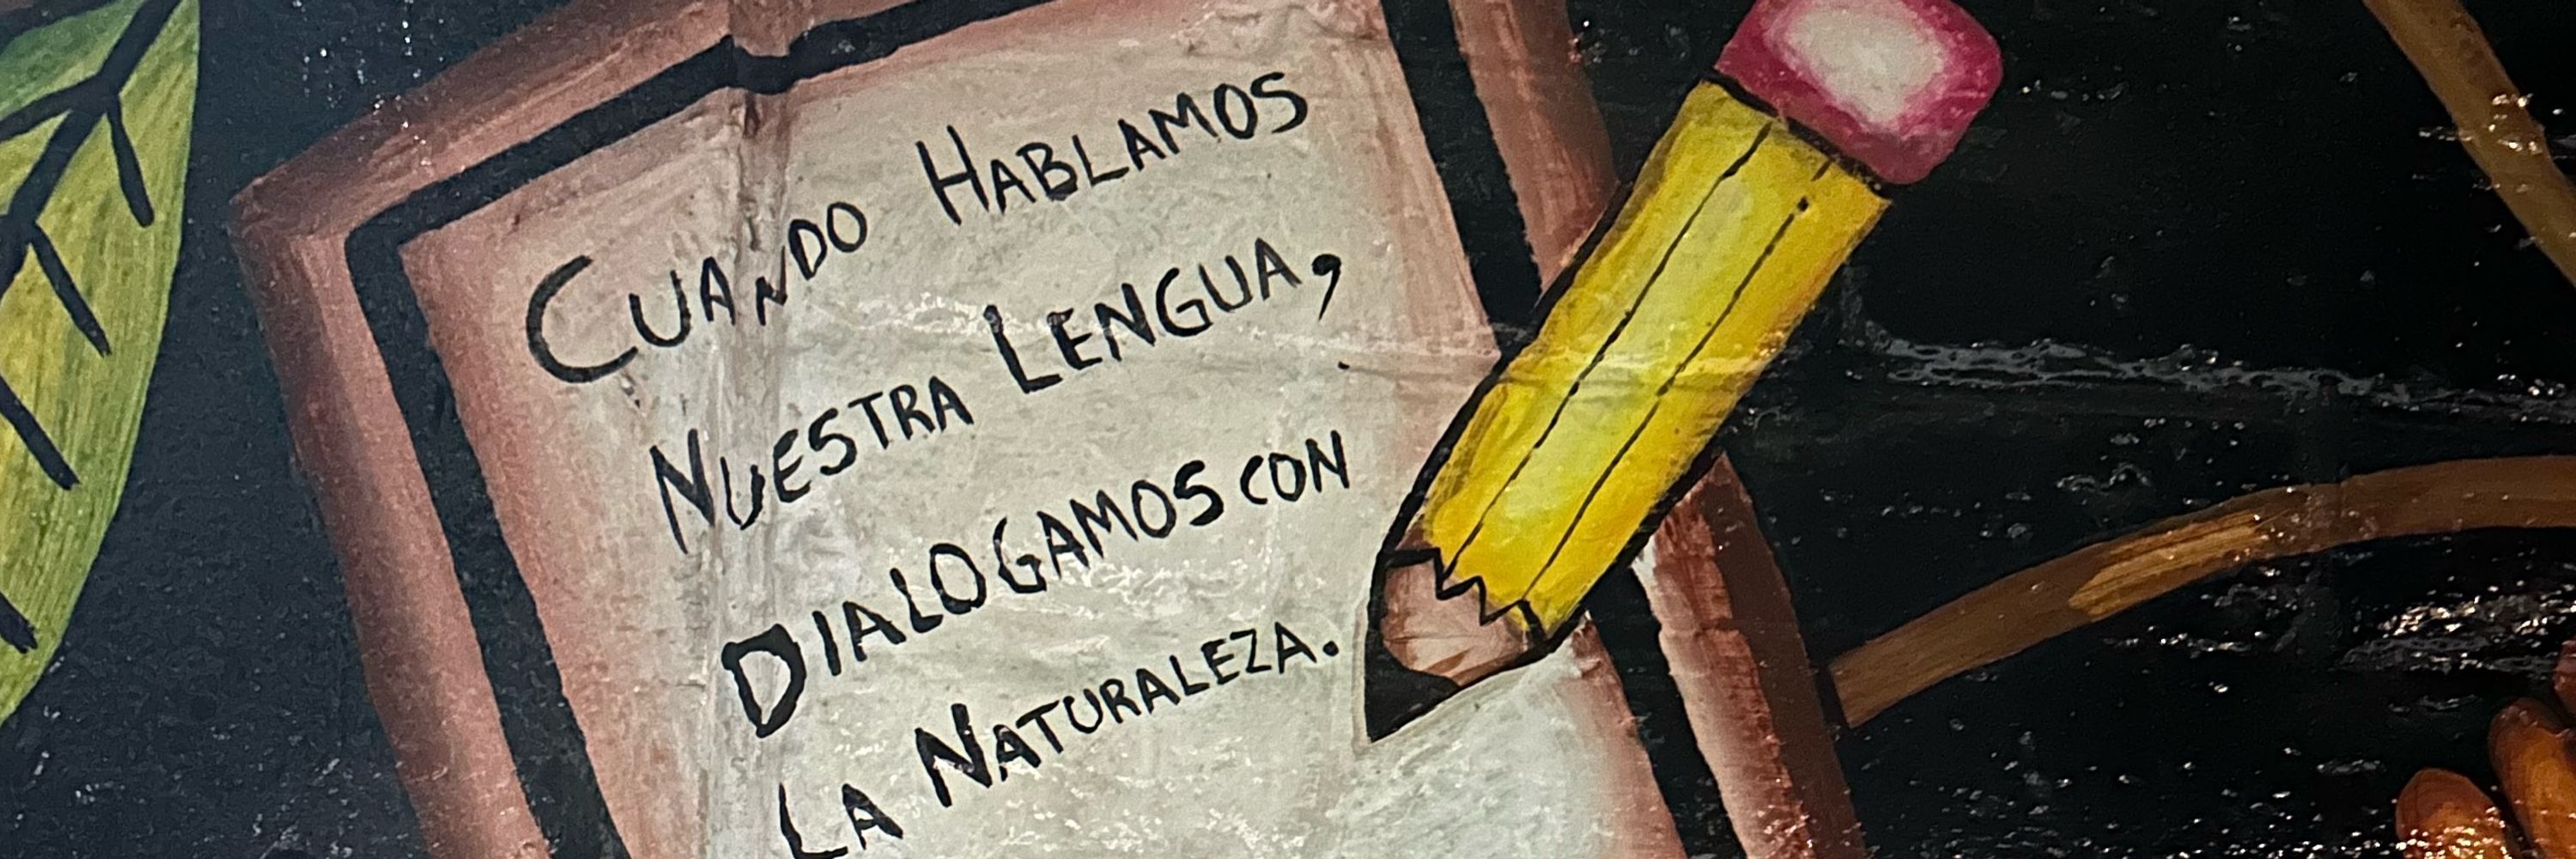 Cuando Hablamos
Nuestra Lengua,
Dialogamos con
La Naturaleza.